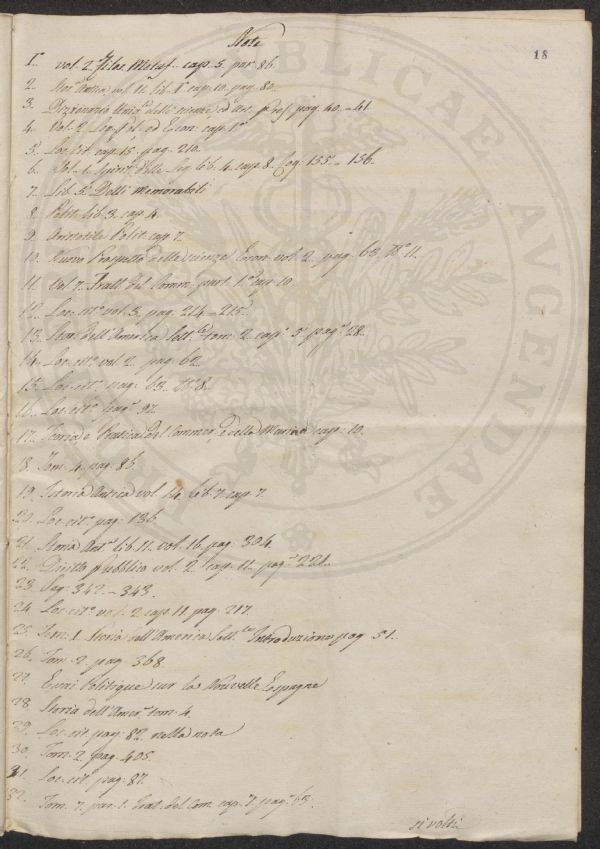 Note
18
1.° vol. 2. Filos. Metaf. cap. 5. par. 86.
2. Stor. Antica vol. 11. lib. 1.° cap. 10. pag. 80.
3. Dizzionario Univ.e delle scienze ed Art. pref. pag. 40. - 41.
4. Vol. 2. Lez. Pol. ed Econ. cap. 1.°
5. Loc. cit. cap. 15. pag. 210.
6. Vol. 1. Spirit. delle Leg. lib. 4. cap. 8. Pag. 155. - 156.
7. Lib. 5.° Delli Memorabili
8. Polit. lib. 3. cap. 4.
9. Aristotile Polit. cap. 7.
10. Nuovo Prospetto delle scienze Econ. vol. 2. pag. 63. N.° 11.
11. Vol. 7. Tratt. del Comm. part. 1.a cap. 10
12. Loc. cit.° vol. 5. pag. 214 - 215.
13. Stor. dell'America Sett.le tom. 2. cap.° 5. pag.a 28.
14. Loc. cit.° vol. 2. pag. 62.
15. Loc. cit.° pag. 63. N.° 8.
16. Loc. cit.° pag.a 97.
17. Teoria e Pratica del Commer. e della Marina cap. 10.
18. Tom. 4. pag. 86.
19. Istoria Antica vol. 14. lib. 7. cap. 7.
20. Loc. cit.° pag. 136.
21. Storia Ant.a lib. 11. vol. 16. pag. 304.
22. Diritto pubblico vol. 2. cap. 11. pag.a 221.
23. Pag. 342. - 343.
24. Loc. cit.° vol. 2. cap. 11. pag. 217.
25. Tom. 1. Storia dell'America Sett.le Introduzione pag. 51.
26. Tom. 2. pag. 368.
27. Essai Politique sur la Nouvelle Espagne
28. Storia dell'Amer.a tom. 4.
29. Loc. cit. pag. 82. nella nota
30. Tom. 2. pag. 405.
31. Loc. cit.° pag. 87.
32. Tom. 7. par. 1. Trat. del Com. cap. 7. pag.a 65.
si volti
PUBLICAE
AUGENDAE